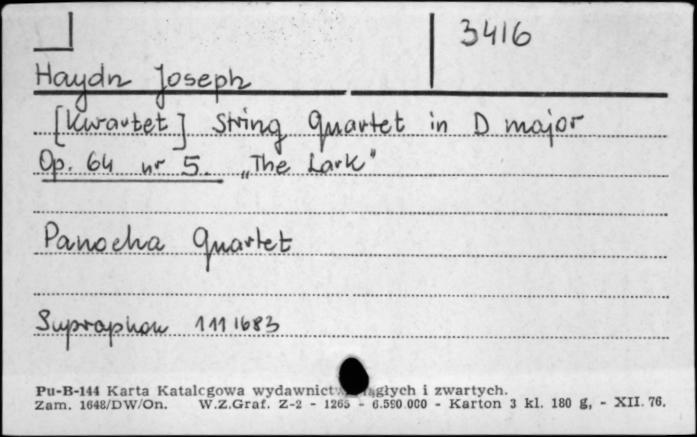 3416
Haydn Joseph
[Kwartet] String Quartet in D major
Op. 64 nr 5. „The Lark"
Panocha Quartet
Supraphon 1111683
Pu-B-144 Karta Katalcgowa wydawnictw ciągłych i zwartych.
Zam. 1648/DW/On. W.Z.Graf. Z-2 - 1265 - 6.590.000 - Karton 3 kl. 180 g, - XII. 76.